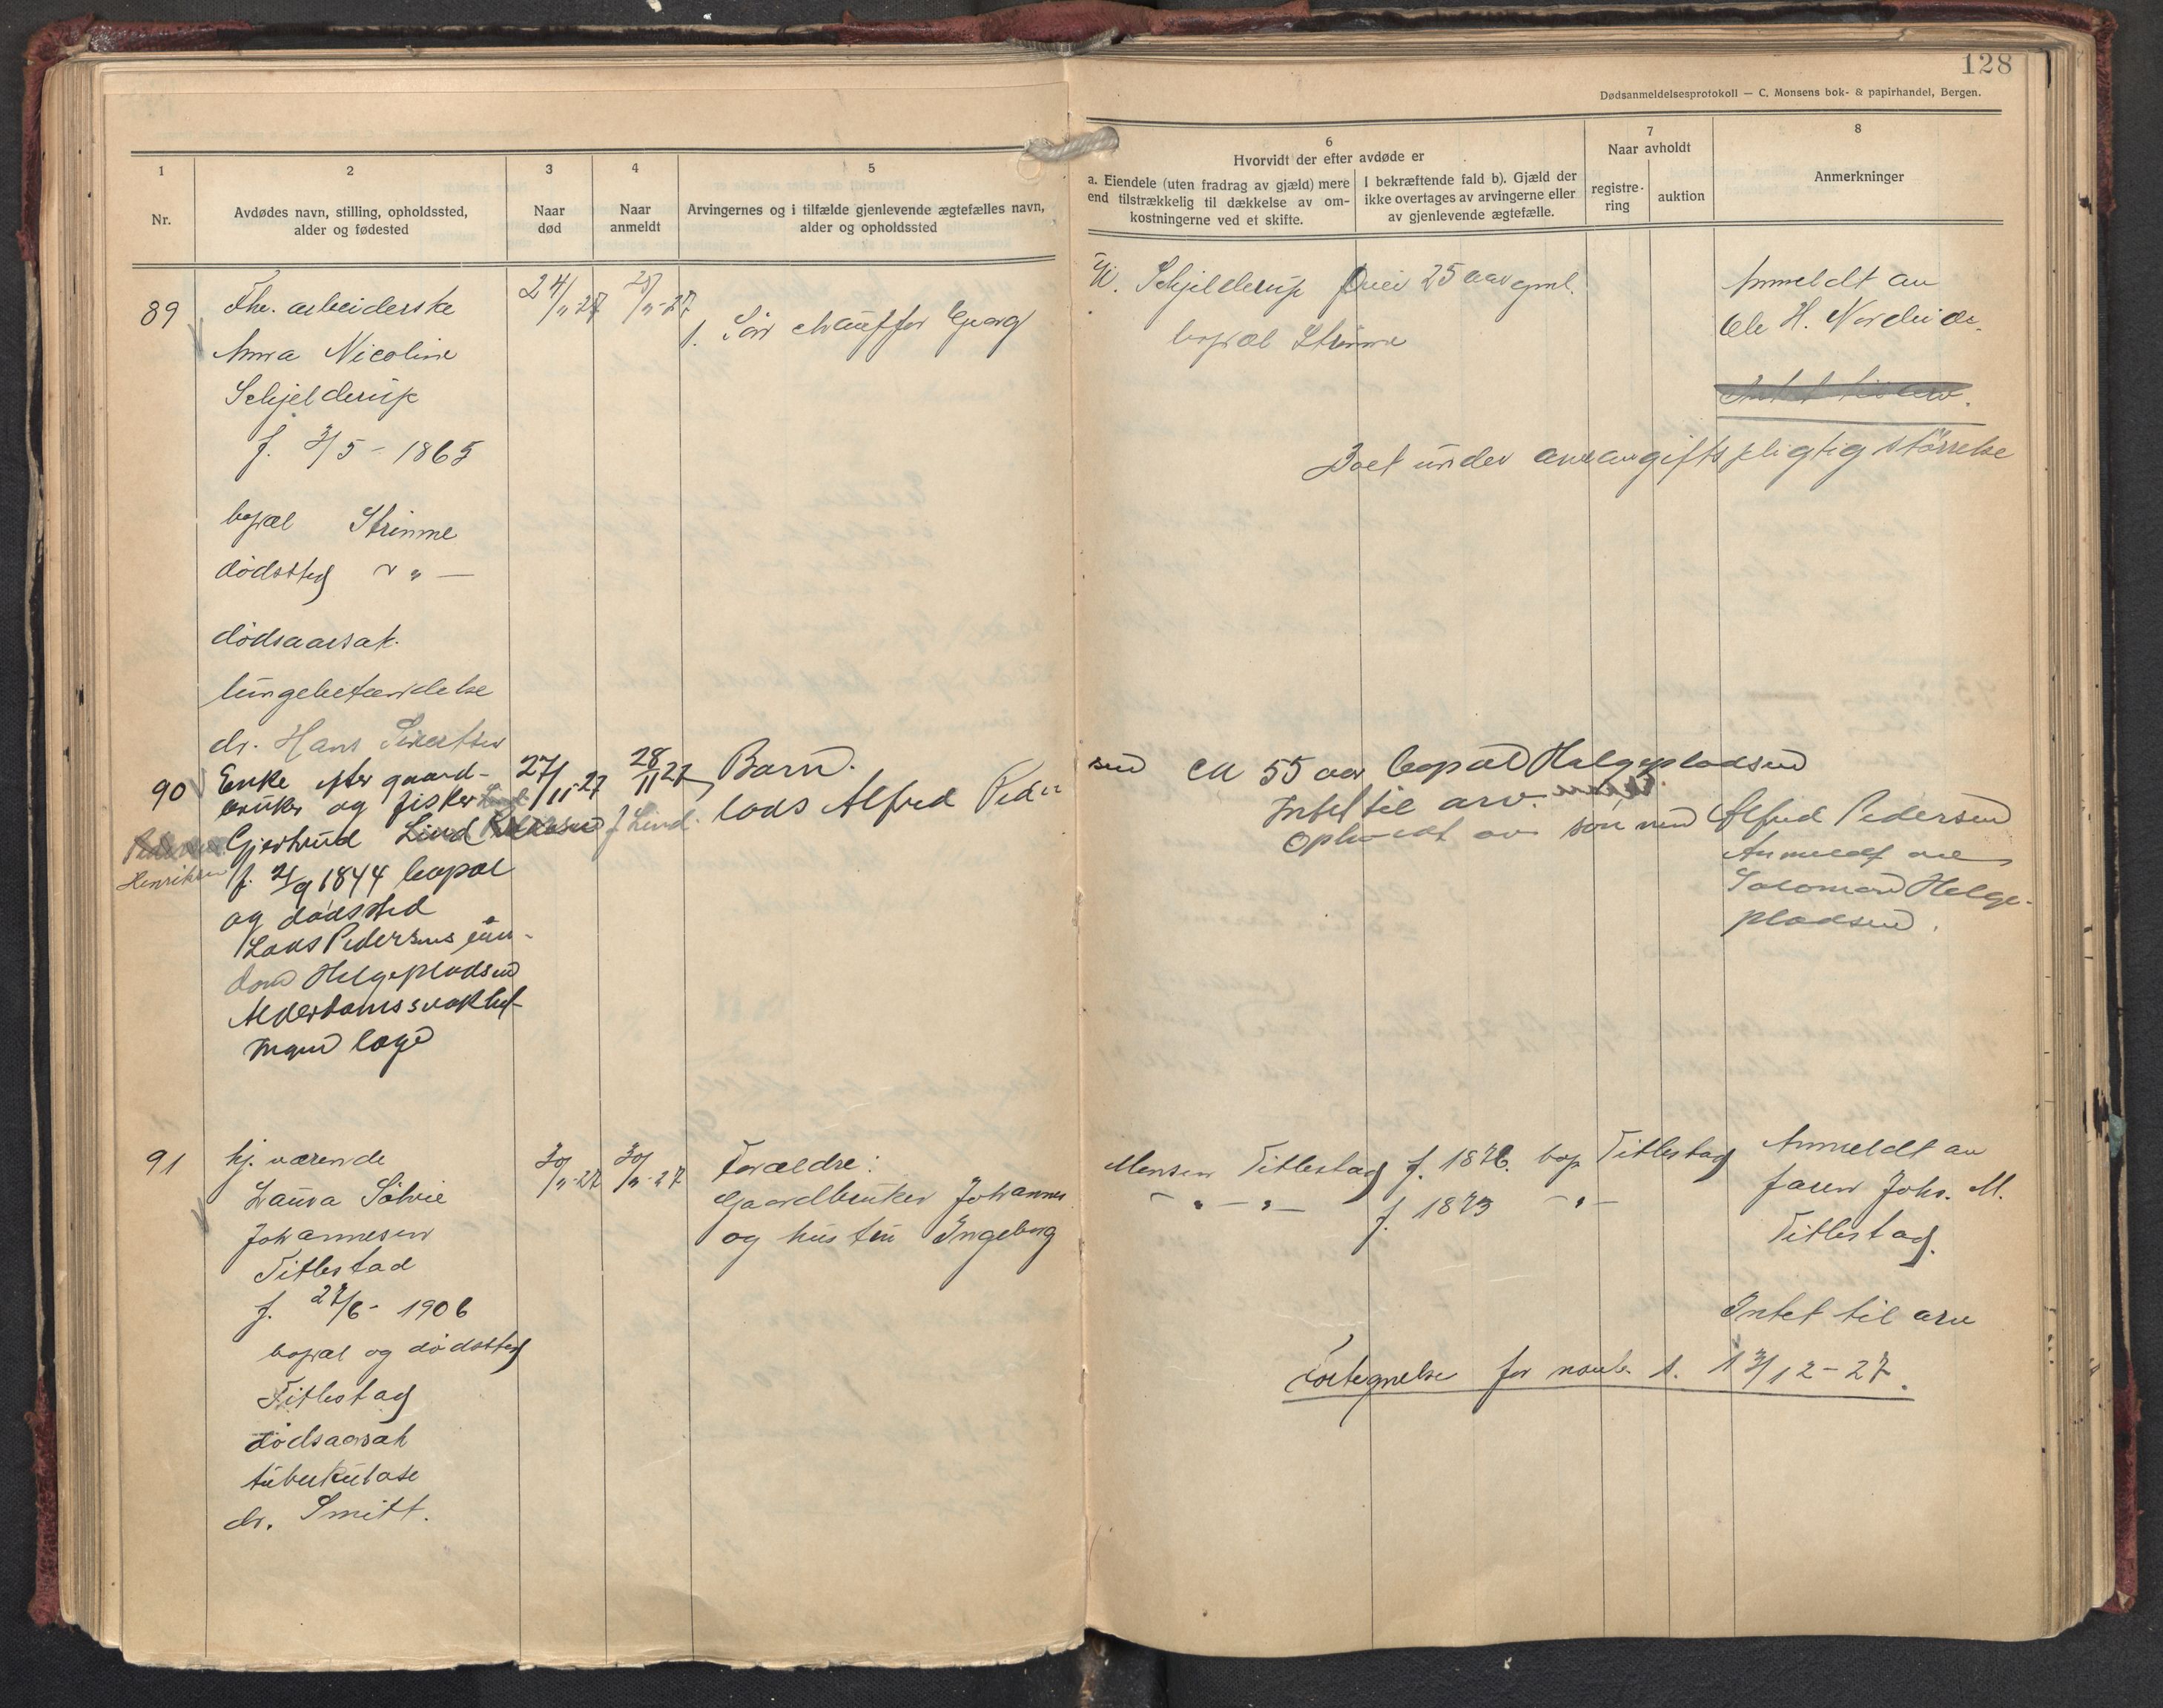 128
Dødsanmeldelsesprotokoll — C. Monsens bok- & papirhandel, Bergen.
1
Nr.
2
Avdødes navn, stilling, opholdssted,
alder og fødested
3
Naar
død
4
Naar
anmeldt
5
Arvingernes og i tilfælde gjenlevende ægtefælles navn,
alder og opholdssted
6
Hvorvidt der efter avdøde er
a. Eiendele (uten fradrag av gjæld) mere
end tilstrækkelig til dækkelse av om-
kostningerne ved et skifte.
I bekræftende fald b). Gjæld der
ikke overtages av arvingerne eller
av gjenlevende ægtefælle.
7
Naar avholdt
registre-
ring
auktion
8
Anmerkninger
89
Fhv. arbeiderske
Anna Nicoline
Schjelderup
f. 3/5 - 1865
bopæl Strimme
dødssted " —
dødsaarsak
lungebetændelse
dr. Hans Sivertsen
24/11-27
25/11-27
1. Søn chauffør Georg
Schjelderup 25 aar gml.
bopæl Strimme
Anmeldt av
Ole H. Nordeide.
Intet til arv.
Boet under arveavgiftspligtig størrelse
90
Enke efter gaard-
bruker og fisker
Gjertrud Lind
Henriksen
f. 2/9 1844 bopæl
og dødssted
Lars Pedersens eien-
dom Helgepladsen
Alderdomssvakhet
Ingen læge
27/11-27
28/11 27
f Lind.
Barn.
Lars Alfred Peder
sen ca 55 aar bopæl Helgepladsen
Intet til arv.
Opholdt av sønnen Alfred Pedersen
Anmeldt av
Salomon Helge-
pladsen.
91
hj. værende
Laura Solvie
Johannesen
Titlestad
f. 27/6 - 1906
bopæl og dødssted
Titlestad
dødsaarsak
tuberkulose
dr. Smitt.
30/11-27
30/11-27
Forældre:
Gaardbruker Johannes
og hustru Ingeborg
Monsen Titlestad f. 1876. bop Titlestad
— " — " — f. 1873 — " —
Anmeldt av
faren Johs. M.
Titlestad.
Intet til arv
Fortegnelse for novbr. s. 13/12-27.